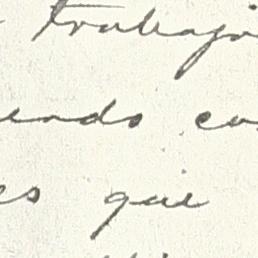 trabajo
endo co
es que